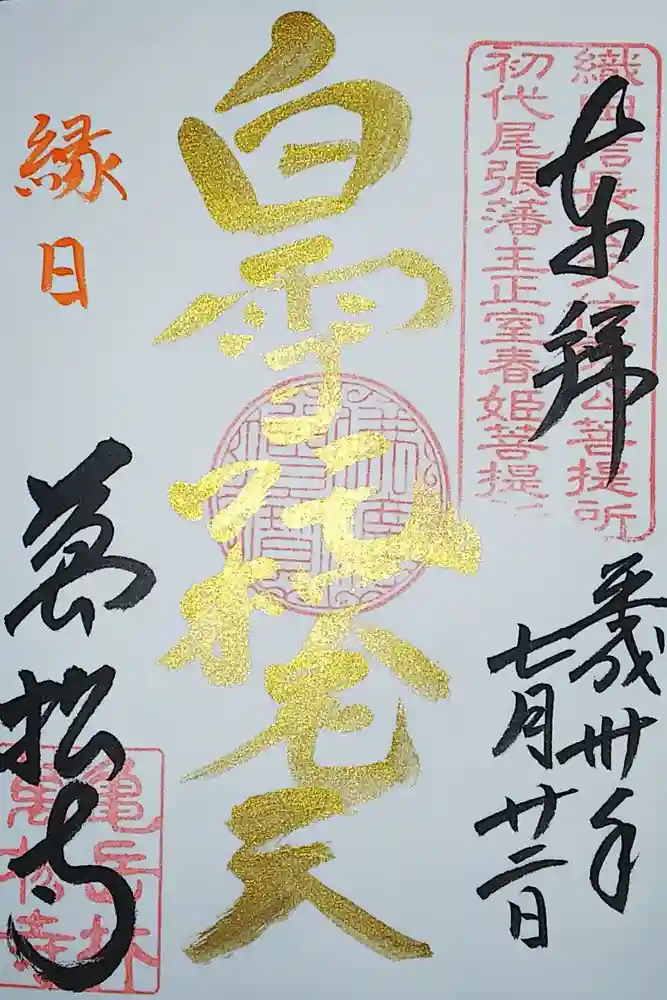 奉拝
織田信長公父信秀公菩提所
初代尾張藩主正室春姫菩提所
平成卅年
七月廿二日
白雪
天
縁日
萬松寺
亀岳林
萬松寺